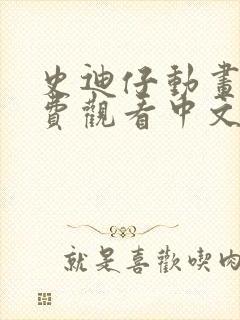 史迪仔動畫
費觀看中文
就是喜歡喫肉